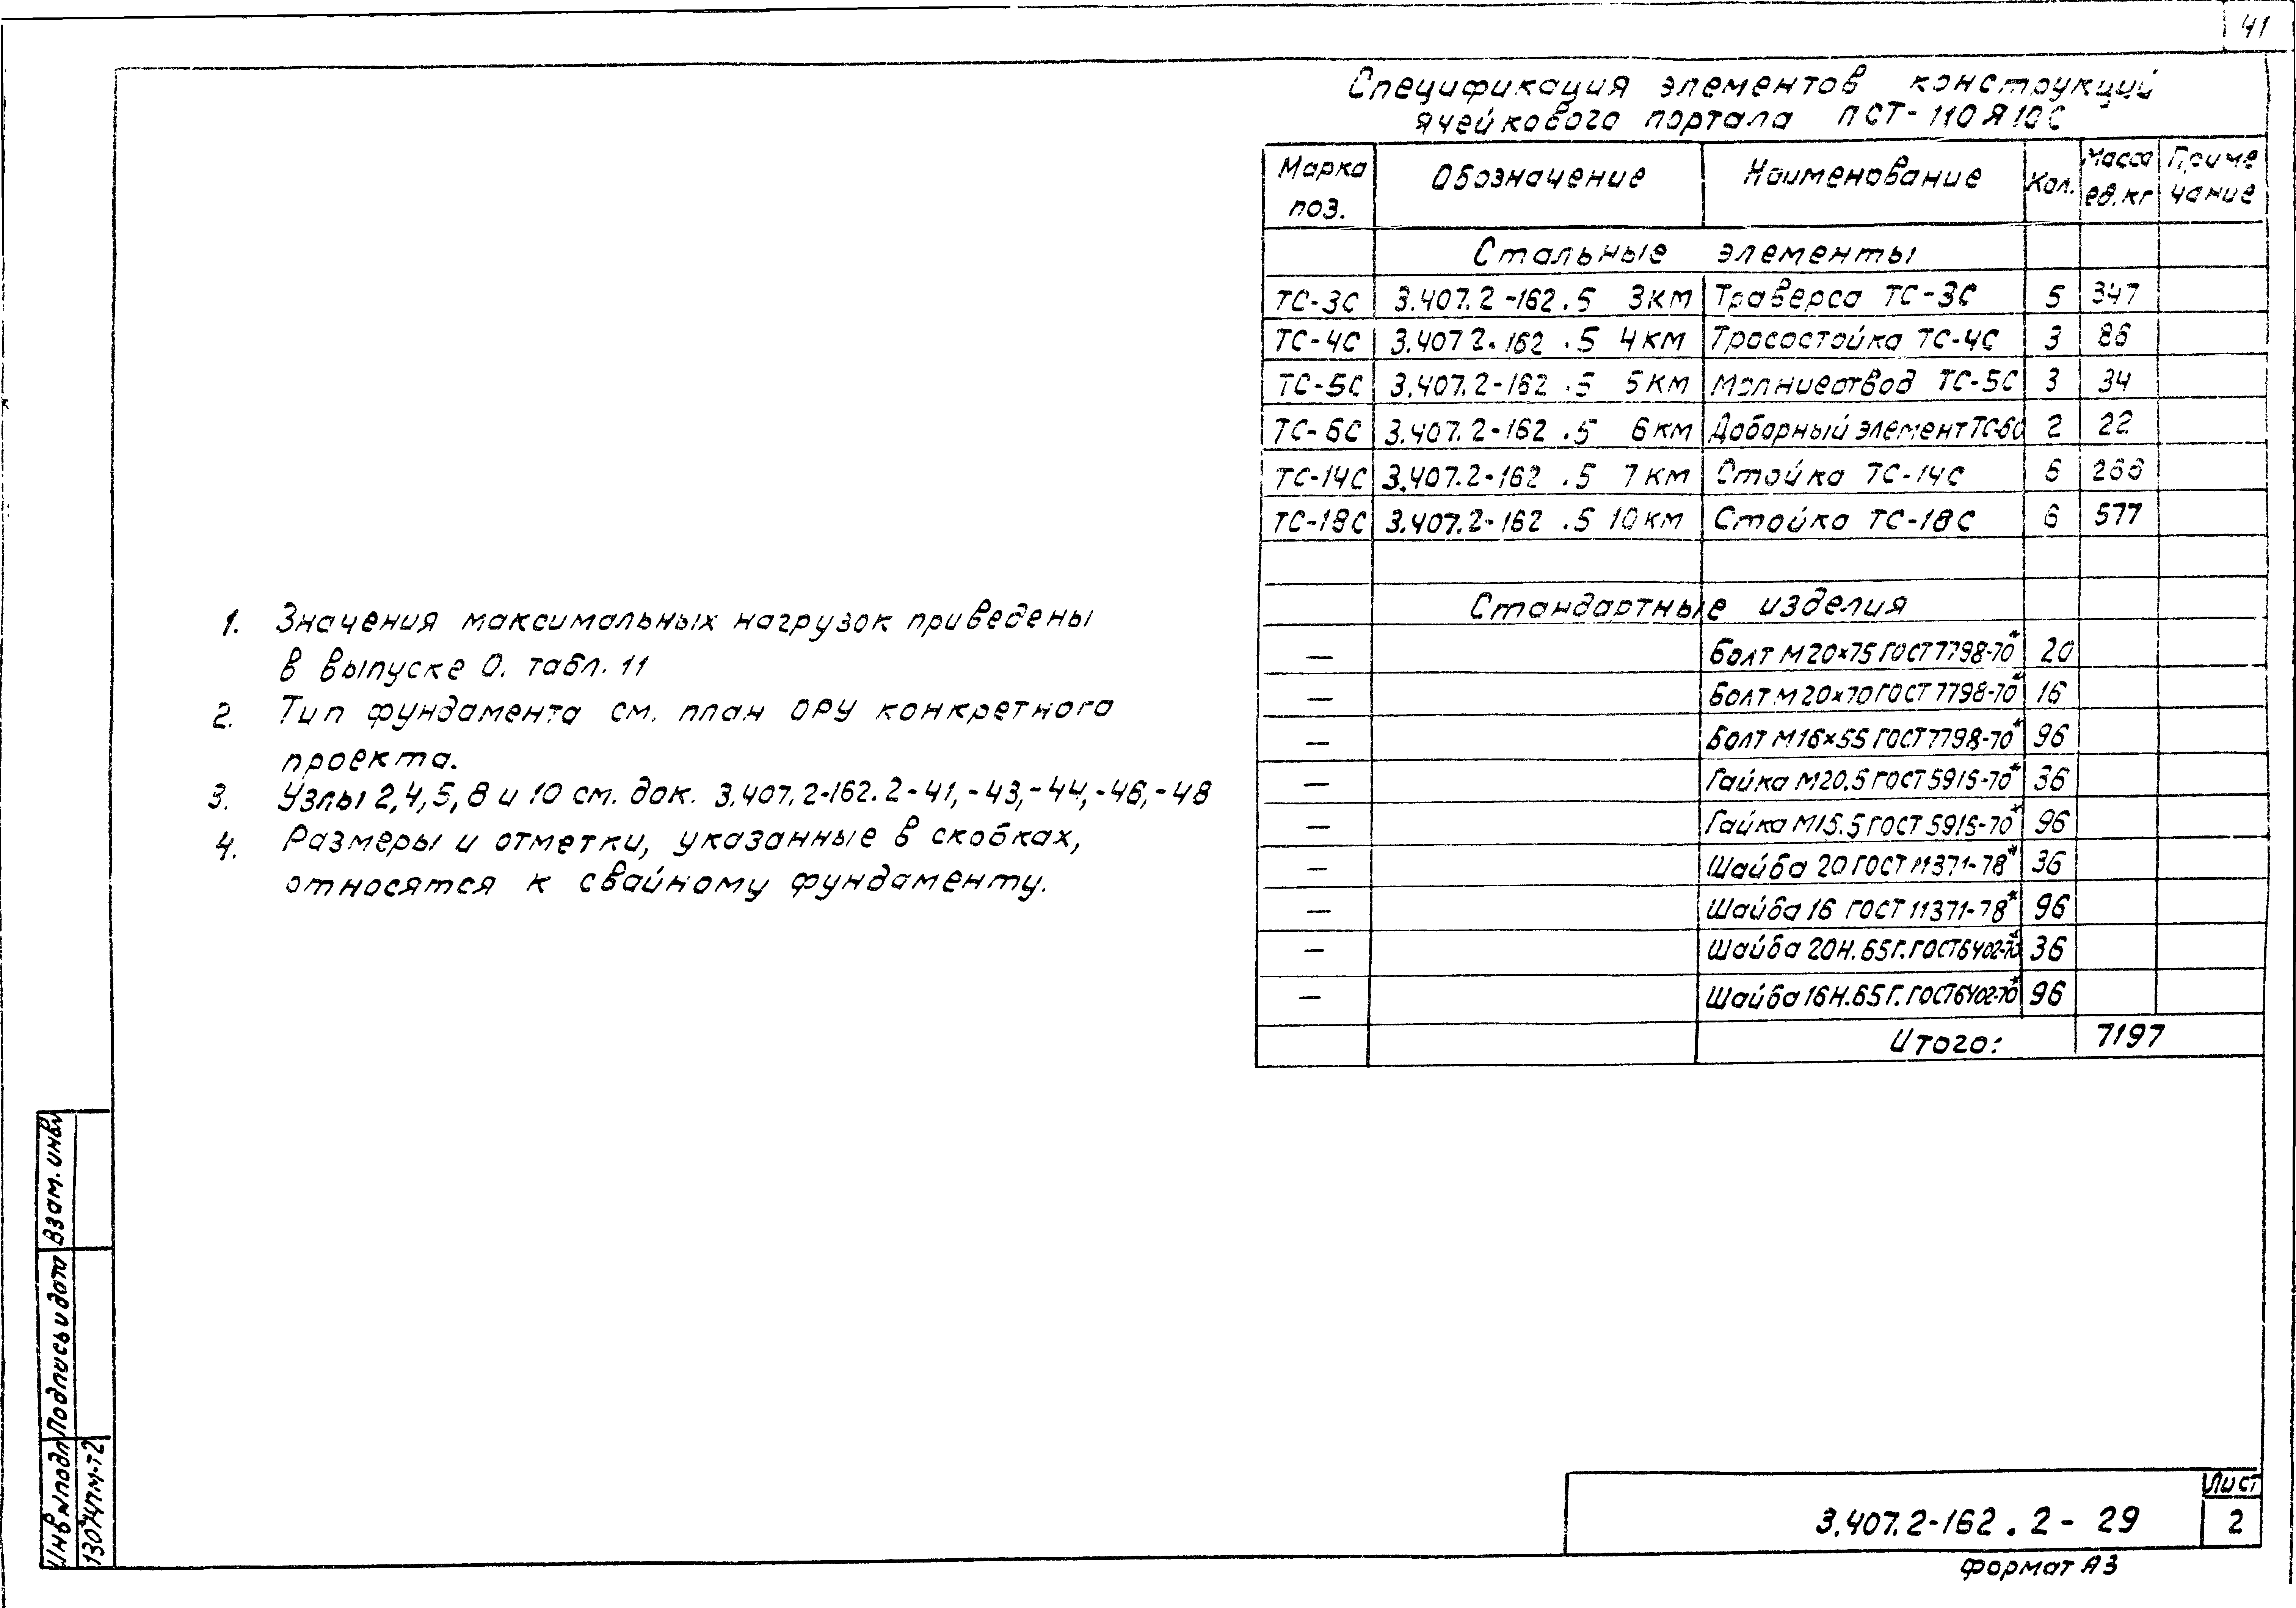 41
Спецификация элементов конструкций
ячейкового портала ПСТ-110Я10С
Марка поз. Обозначение Наименование Кол. Масса ед. кг Приме чание
Стальные элементы
ТС-3С 3.407.2-162.5 3км Траверса ТС-3С 5 347
ТС-4С 3.407 2.162 .5 4км Тросостойка ТС-4С 3 86
ТС-5С 3.407.2-162 .5 5км Молниеотвод ТС-5С 3 34
ТС-6С 3.407.2-162 .5 6км Доборный элемент ТС-6С 2 22
ТС-14С 3.407.2-162 .5 7км Стойка ТС-14С 6 266
ТС-18С 3.407.2-162 .5 10км Стойка ТС-18С 6 577
Стандартные изделия
— Болт М20×75 ГОСТ 7798-70* 20
— Болт М20×70 ГОСТ 7798-70* 16
— Болт М16×55 ГОСТ 7798-70* 96
— Гайка М20.5 ГОСТ 5915-70* 36
— Гайка М16.5 ГОСТ 5915-70* 96
— Шайба 20 ГОСТ 11371-78* 36
— Шайба 16 ГОСТ 11371-78* 96
— Шайба 20Н.65Г.ГОСТ6402-70* 36
— Шайба 16Н.65Г.ГОСТ6402-70* 96
Итого: 7197
1. Значения максимальных нагрузок приведены
в выпуске 0. табл. 11
2. Тип фундамента см. план ОРУ конкретного
проекта.
3. Узлы 2,4,5,8 и 10 см. док. 3.407.2-162.2-41,-43,-44,-46,-48
4. Размеры и отметки, указанные в скобках,
относятся к свайному фундаменту.
Взам. инв№
Подпись и дата
Инв № подл
13074тм-т2
3.407.2-162.2-29
Лист
2
Формат А3